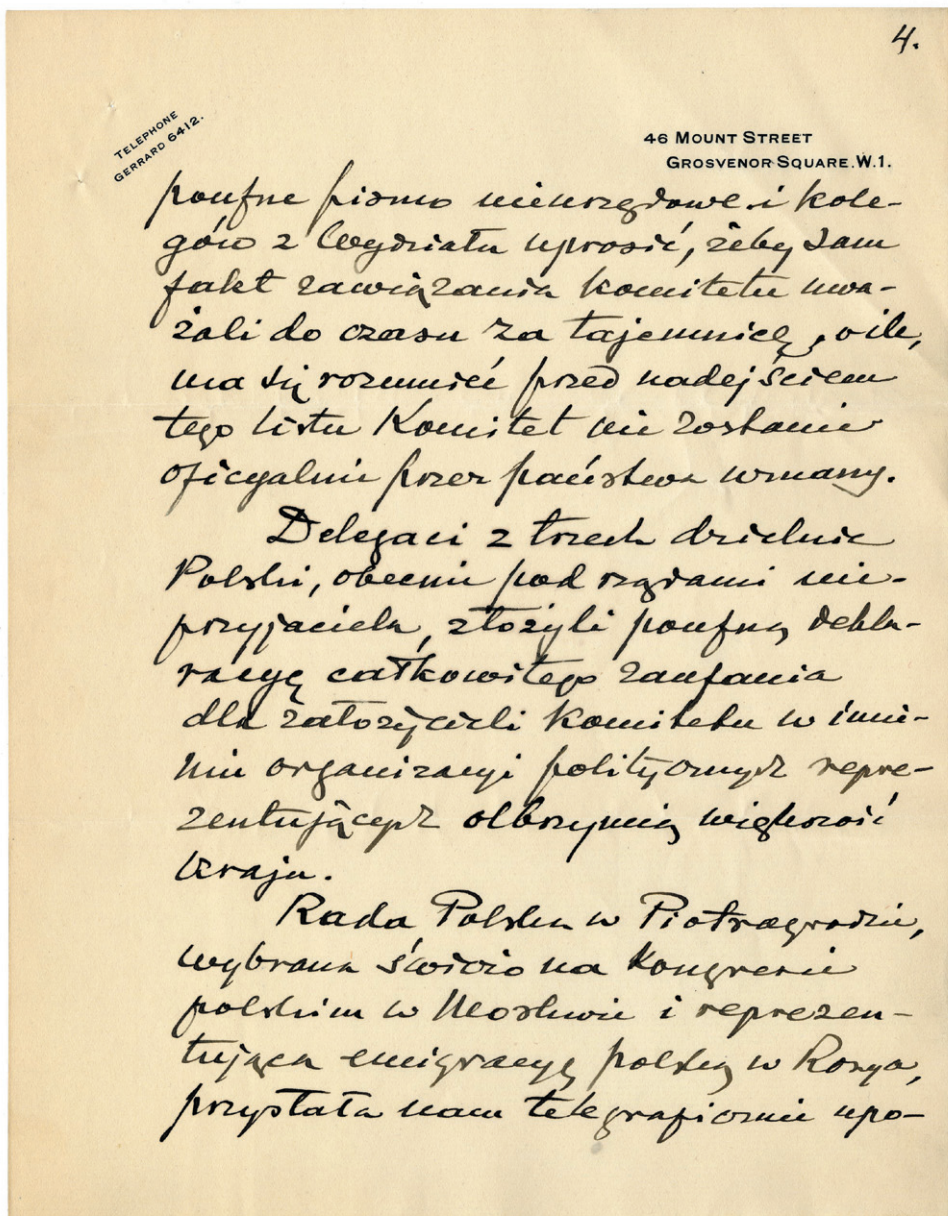 4.
TELEPHONE
GERRARD 6412.
46 MOUNT STREET
GROSVENOR SQUARE. W.1.
poufne pismo nieurzędowe i kole-
gów z Wydziału uprosić, żeby sam
fakt zawiązania komitetu uwa-
żali do czasu za tajemnicę, o ile,
ma się rozumieć przed nadejściem
tego listu Komitet nie zostanie
oficyalnie przez państwa uznany.
Delegaci z trzech dzielnic
Polski, obecnie pod rządami nie-
przyjaciela, złożyli poufną dekla-
racyę całkowitego zaufania
dla założycieli komitetu w imie-
niu organizacyi politycznych repre-
zentujących olbrzymią większość
kraju.
Rada Polska w Piotragrodzie,
wybrana świeżo na Kongresie
polskim w Moskwie i reprezen-
tująca emigracyę polską w Rosyi,
przysłała nam telegraficznie upo-